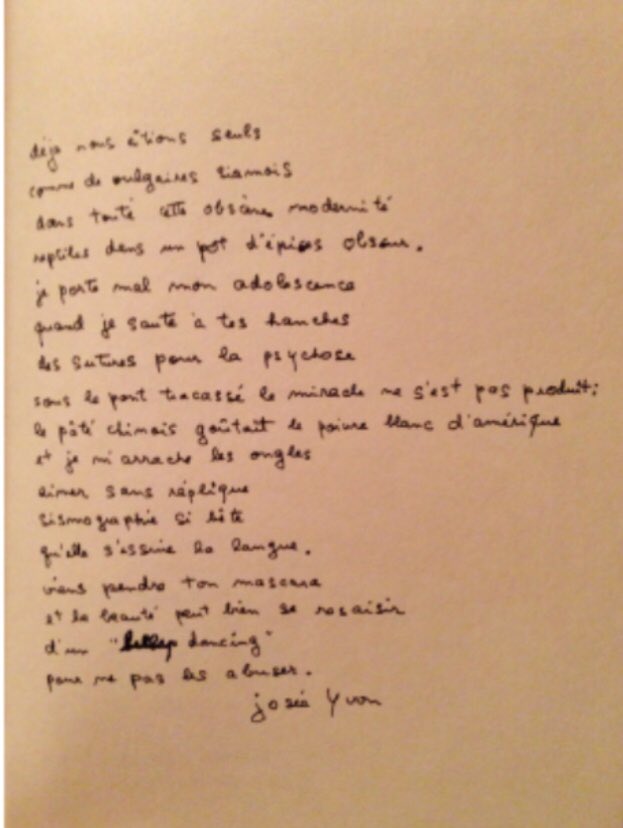 déjà nous étions seuls
comme de vulgaires siamois
dans toute cette obscène modernité
reptiles dans un pot d'épices obscur.
je porte mal mon adolescence
quand je saute à tes hanches
des sutures pour la psychose
sous le pont tracassé le miracle ne s'est pas produit;
le pâté chinois goûtait le poivre blanc d'amérique
et je m'arrache les ongles
aimer sans réplique
sismographie si bête
qu'elle s'essuie la langue.
viens pendre ton mascara
et la beauté peut bien se resaisir
d'un " dancing"
pour ne pas les abuser.
josée yvon